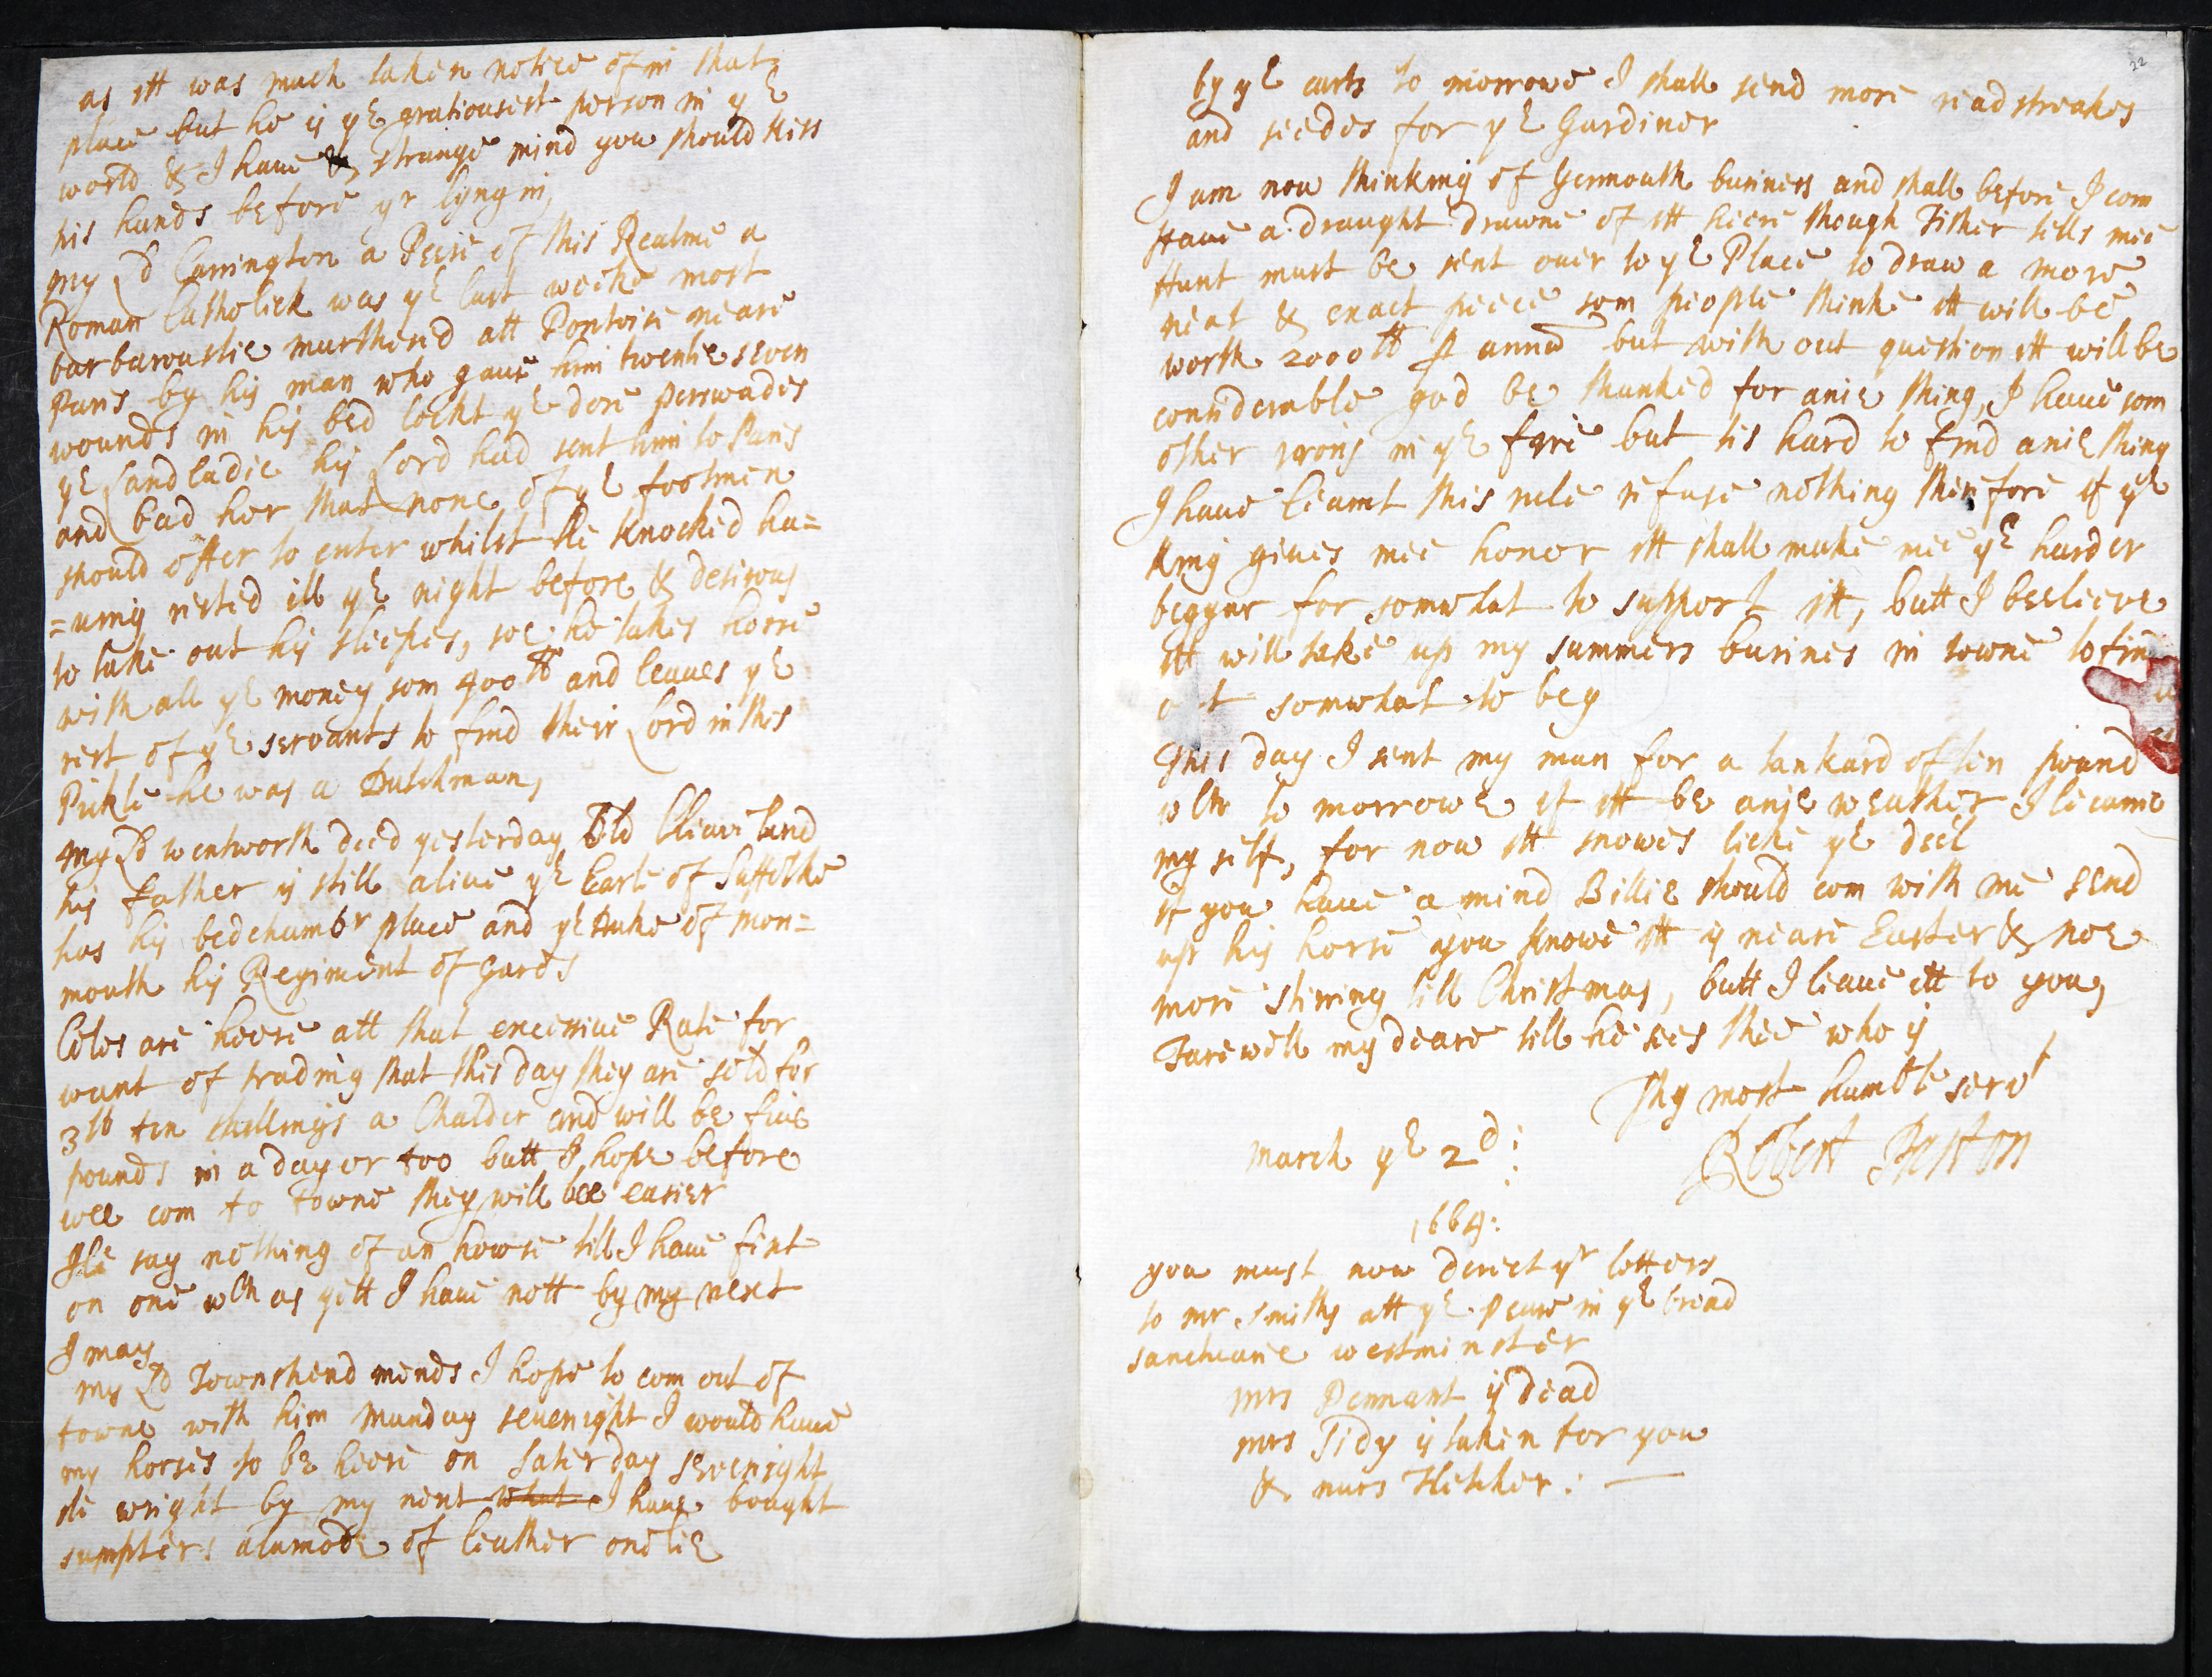 as itt was much taken notice of in that
place but he is yᵉ gratiousest person in yᵉ
world & I haue strange mind you should kiss
his hands before yr lyng in,
my Ld Carrington a Peere of this Realme a
Roman Catholick was yᵉ last weeke most
barbarouslie murthered att Pontoise neare
Paris by his man who gaue him twentie seven
wounds in his bed lockt yᵉ dore perswades
yᵉ Landladie his Lord had sent him to Paris
and bad her that none of yᵉ footmen
should offer to enter whilst he knocked ha=
=uing rested ill yᵉ night before & desirous
to take out his sleepes, soe he takes horse
with all yᵉ money som 400ᵗᵗ and leaues yᵉ
rest of yᵉ servants to find their Lord in this
Pickle he was a Dutchman,
my Ld wentworth deed yesterday Old Cleaveland
his father is still aliue yᵉ Earle of Suffolke
has his bedchambr place and yᵉ Duke of Mon=
mouth his Regiment of Gards
Coles are heere att that excessiue Rate for
want of trading that this day they are sold for
3ˡᵇ ten shillings a Chalder and will be fiue
pounds in a day or too butt I hope before
wee com to towne they will bee easier
Ile say nothing of an howse till I haue fixt
on one wᶜʰ as yett I haue nott by my next
I may
my Ld Townshend mends I hope to com out of
towne with him Munday seuenight I would haue
my horses to be heere on Saterday sevenight
ile wright by my next what I haue bought
sumpters alamode of leather onelie
22
by yᵉ carts to morrowe I shall send more readstreakes
and seedes for yᵉ Gardiner
I am now thinking of Yermouth business and shall before I com
haue a draught drawne of itt heere though Fisher tells mee
Hunt must be sent ouer to yᵉ Place to draw a more
neat & exact peece som people thinke itt will be
worth 2000ᵗᵗ p annũ but with out question itt will be
considerable god be thanked for anie thing, I haue som
other irons in yᵉ fyre but tis hard to find anie thing
I haue learnt this rule refuse nothing therefore if yᵉ
King giues mee honor itt shall make mee yᵉ harder
beggar for somwhat to support itt, butt I beelieve
itt will take up my summers busines in towne to fin
o t somwhat to beg
This day I sent my man for a tankard of ten pound
wᶜʰ to morrowe if itt be anje weather Ile
my self, for now itt snowes lieke yᵉ deel
if you haue a mind Billie should com with me send
up his horse you knowe itt is neare Easter & noe
more stirring till Christmas, butt I leaue itt to you,
Farewell my deare till he sees thee who is
Thy most humble servᵗ
Robert Paston
March yᵉ 2ᵈ:
1664:
you must now derect yʳ letters
to mr Smiths att yᵉ in yᵉ broad
sanctuarie westminster
mrs Pennant is dead
mrs Tidy is taken for you
& nurs Fletcher: —